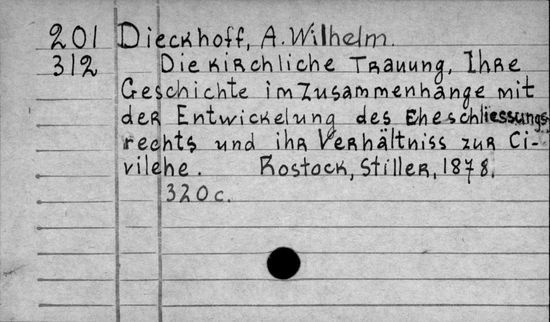 201 Dieckhoff, A. Wilhelm.
312 Die kirchliche Trauung, Ihre
Geschichte im Zusammenhange mit
der Entwickelung des Eheschliessungs-
rechts und ihr Verhältniss zur Ci-
vilehe. Rostock, Stiller, 1878.
320c.